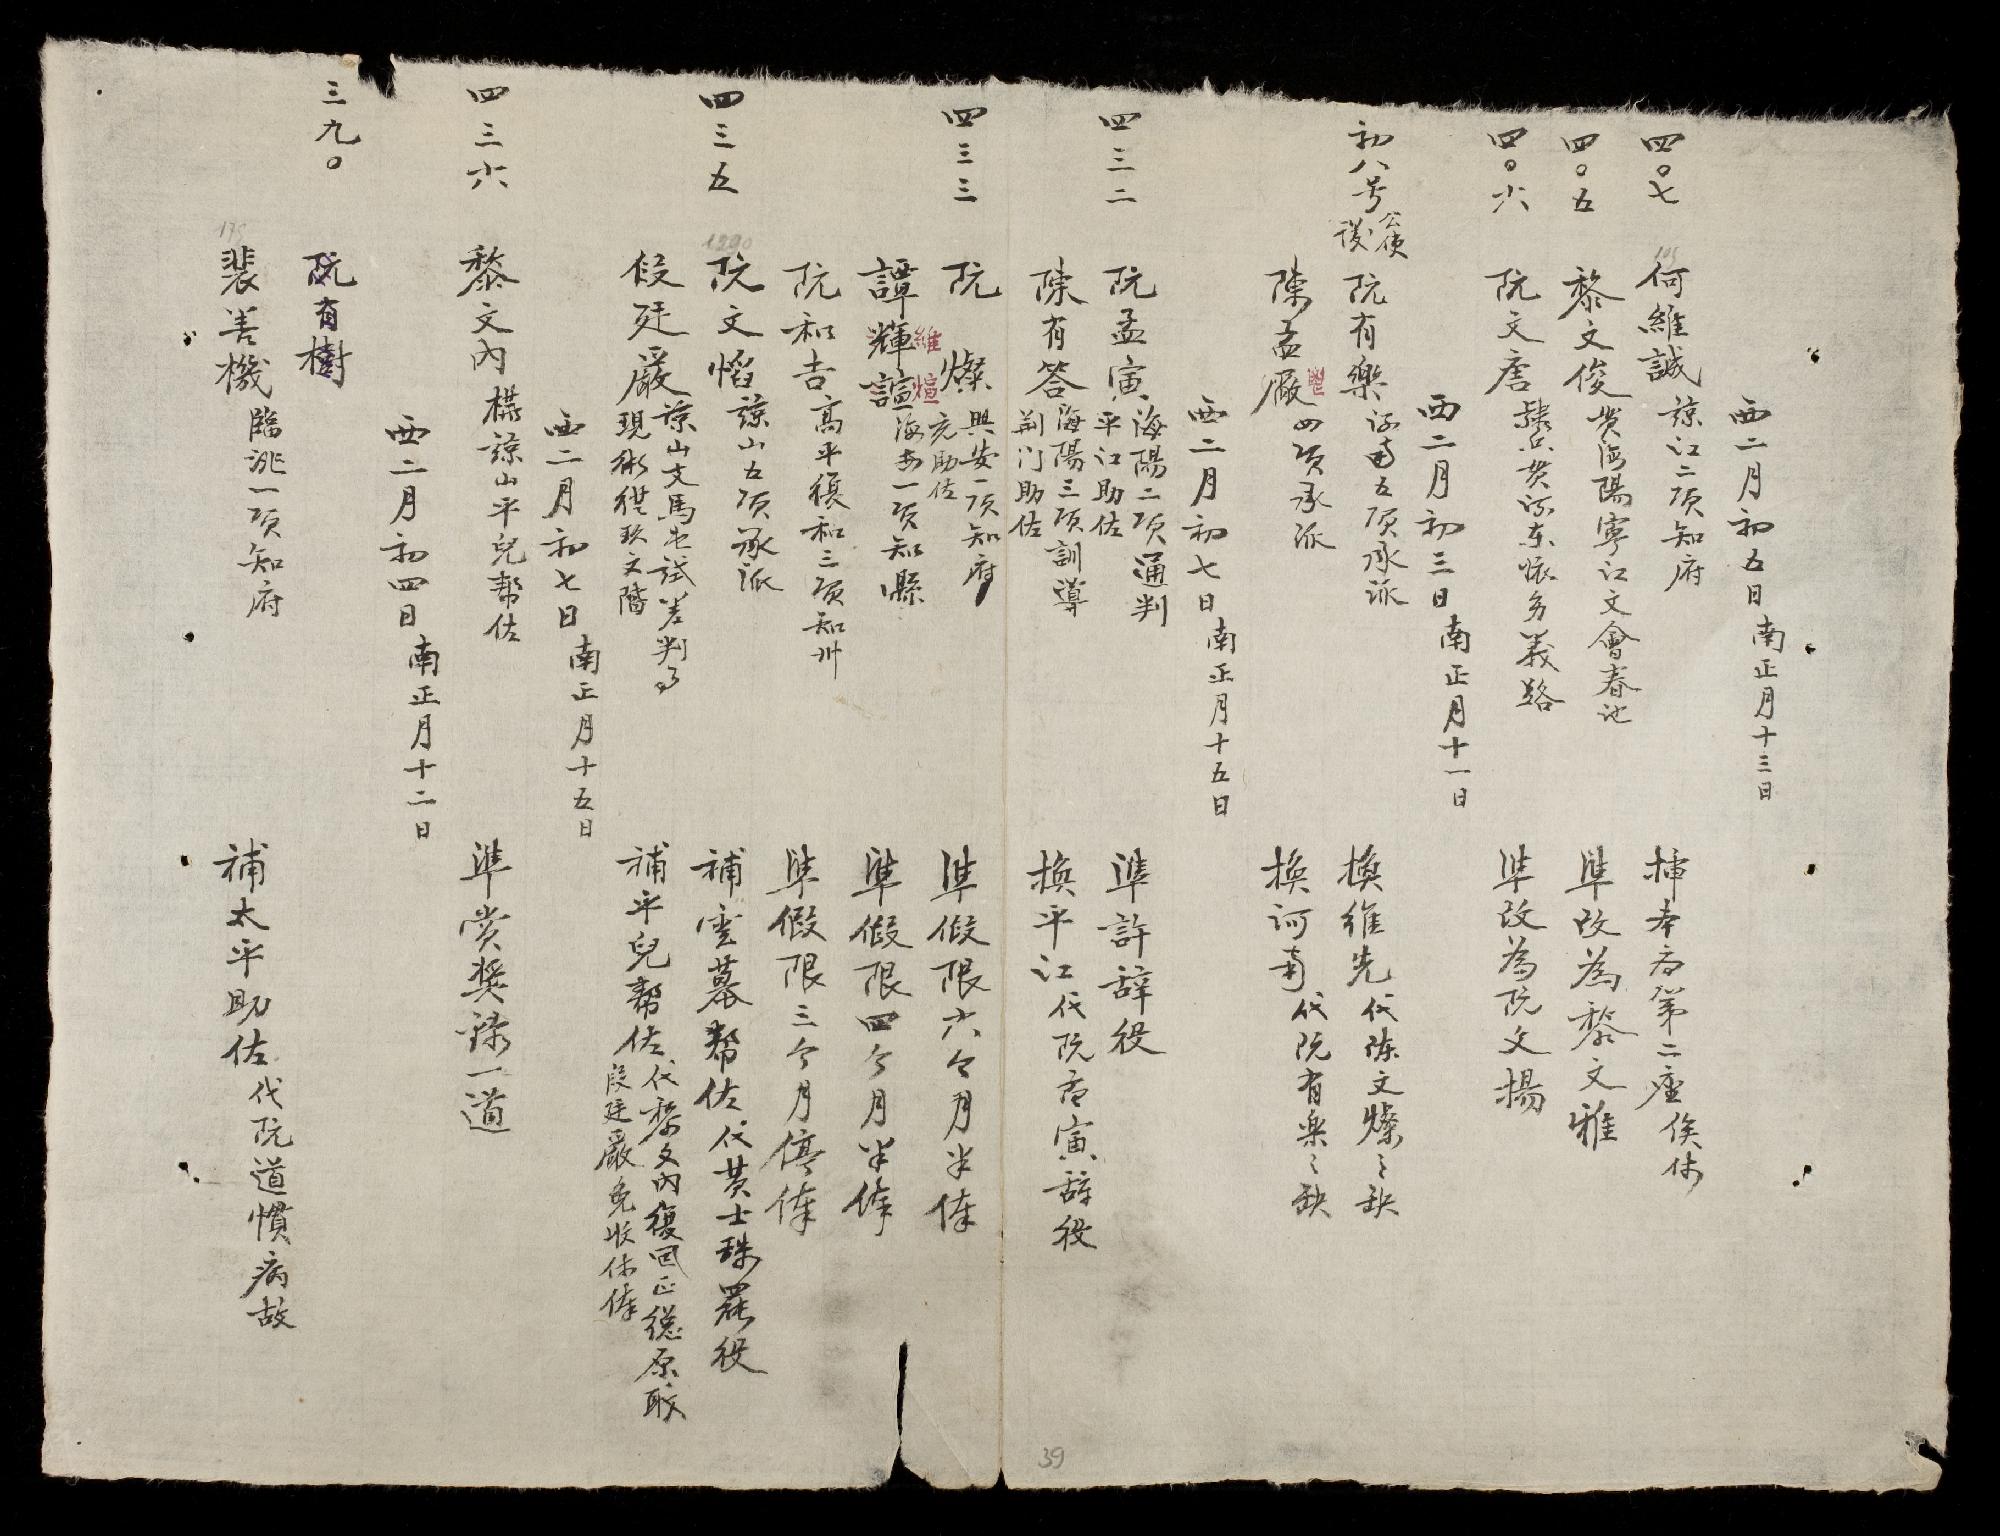 西二月初五日 南正月十三日
四〇七 何維誠 諒江二項知府 挿本府第二座俟休
四〇五 黎文俊 貫海陽寧江文會春池 準改為黎文雅
四〇六 阮文唐 隸兵貫河東懷 義路 準改為阮文揚
西二月初三日 南正月十一日
初八号
阮有樂 河南五項承派 換維先代陈文燦之缺
陳孟嚴 四項承派 換河南代阮有樂之缺
西二月初七日 南正月十五日
四三二 阮孟寅 海陽二項通判 平江助佐 準許辞役
陳有答 海陽三項訓導 荆门助佐 換平江代阮孟寅辞役
四三三 阮燦 興安一項知府 充助佐 準假限六个月半俸
譚輝諠 維煊 海安一項知縣 準假限四个月半俸
阮和吉 高平復和三項知州 準假限三个月停俸
四三五 阮文慆 諒山五項承派 補雲幕幫佐代黄士珠罷役
段廷嚴 諒山文馬 試差判事 現 從玖文階 補平兒幫佐代黎文内復回正總原職 段廷嚴免收休俸
西二月初七日 南正月十五日
四三六 黎文内 諒山平兒幫佐 準赏奬錄一道
西二月初四日 南正月十二日
三九〇 阮有樹
裴善機 臨洮一項知府 補太平助佐代阮道慣病故
39